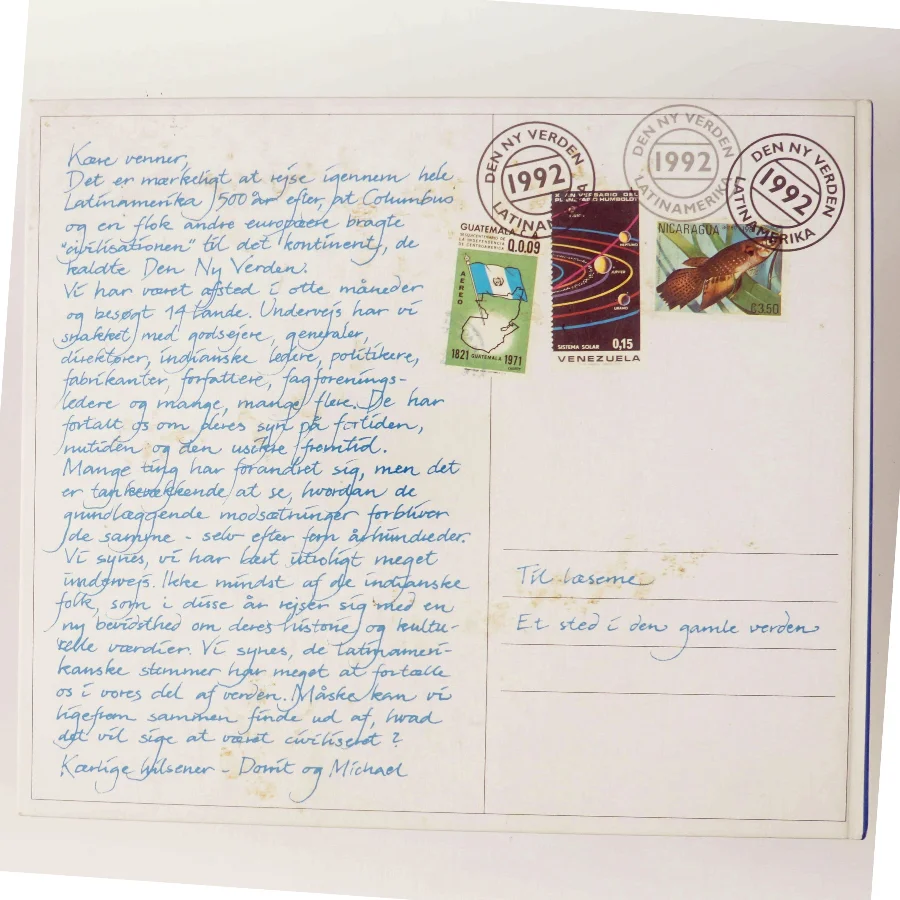 Kære venner,
Det er mærkeligt at rejse igennem hele
Latinamerika 500 år efter, at Columbus
og en flok andre europæere bragte
"civilisationen" til det kontinent, de
kaldte Den Ny Verden.
Vi har været afsted i otte måneder
og besøgt 14 lande. Undervejs har vi
snakket med godsejere, generaler,
direktører, indianske ledere, politikere,
fabrikanter, forfattere, fagforenings-
ledere og mange, mange flere. De har
fortalt os om deres syn på fortiden,
nutiden og den usikre fremtid.
Mange ting har forandret sig, men det
er tankevækkende at se, hvordan de
grundlæggende modsætninger forbliver
de samme - selv efter fem århundreder.
Vi synes, vi har lært utroligt meget
undervejs. Ikke mindst af de indianske
folk, som i disse år rejser sig med en
ny bevidsthed om deres historie og kultu-
relle værdier. Vi synes, de latinameri-
kanske stemmer har meget at fortælle
os i vores del af verden. Måske kan vi
ligefrem sammen finde ud af, hvad
det vil sige at været civiliseret?
Kærlige hilsener - Dorrit og Michael
DEN NY VERDEN
1992
LATINAMERIKA
DEN NY VERDEN
1992
LATINAMERIKA
DEN NY VERDEN
1992
LATINAMERIKA
GUATEMALA
LA INDEPENDENCIA
DE CENTROAMERICA
Q.0.09
AEREO
1821 GUATEMALA 1971
HUMBOLDT
NEPTUNO
JUPITER
URANO
SISTEMA SOLAR 0,15
VENEZUELA
NICARAGUA
C3.50
Til læserne
Et sted i den gamle verden